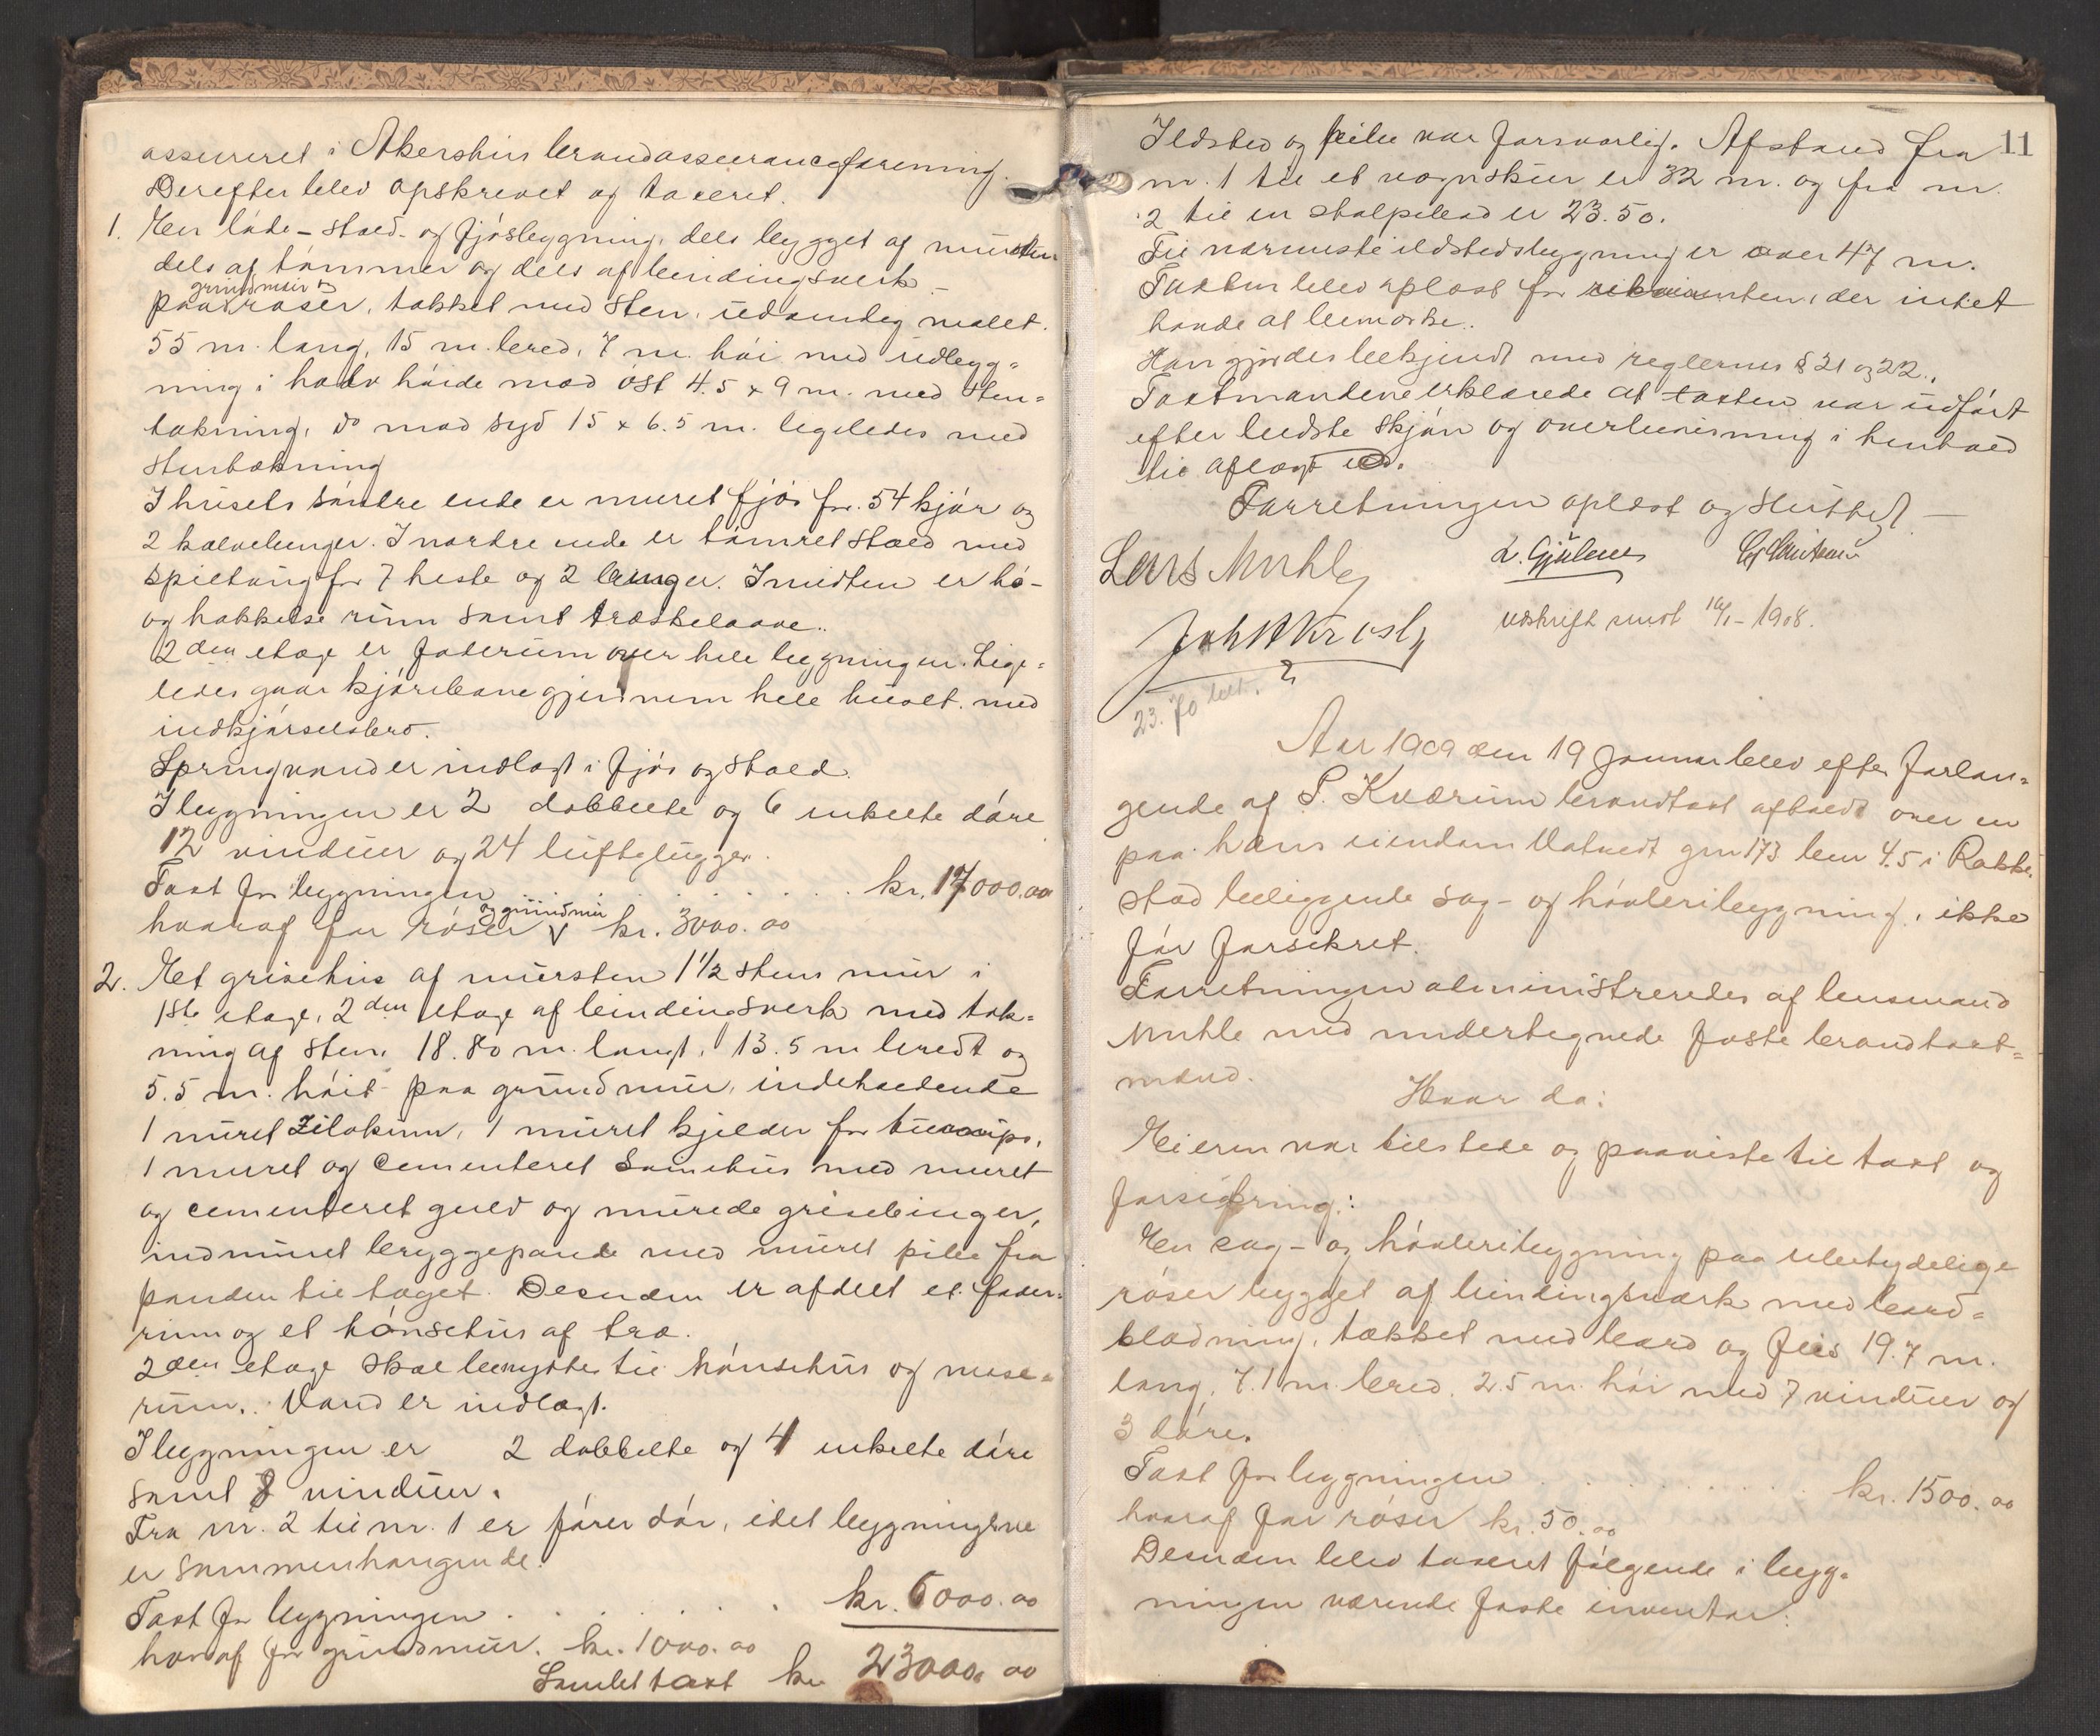 assureret i Akershus brandassuranceforening.
Derefter blev opskrevet og taxeret.
1. Een låde- stald- og fjøsbygning, dels bygget af mursten
dels af tømmer og dels af bindingsverk
grundmur og
paa røser, tækket med sten, udvendig malet.
55 m. lang, 15 m. bred, 7 m. høi med udbygg=
ning i halv høide mod øst 4.5 x 9 m. med sten=
tækning, do mod syd 15 x 6.5 m. ligeledes med
stentækning
I husets søndre ende er muret fjøs for 54 kjør og
2 kalvebinger. I nordre ende er tømret stald med
spiltaug for 7 heste og 2 binger. I midten er hø-
og hakkelse rum samt træskelaave.
2den etage er foderum over hele bygningen. Lige=
ledes gaar kjørebane gjennem hele huset med
indkjørselsbro.
Springvand er indlagt i fjøs og stald.
I bygningen er 2 dobbelte og 6 enkelte døre
12 vinduer og 24 luftglugger.
Taxt for bygningen . . . . . . kr. 17000.00
og grundmur
hvoraf for røser kr. 3000.00
2. Et grisehus af mursten 1 1/2 stens mur i
1ste etage, 2den etage af bindingsverk med tæk=
ning af sten, 18.80 m. langt, 13.5 m bredt og
5.5 m. høit paa grundmur, indeholdende
1 muret Silokum, 1 muret kjelder for turnips,
1 muret og cementeret Svinehus med muret
og cementeret gulv og murede grisebinger,
indmuret bryggepande med muret pibe fra
panden til taget. Desuden er afdelt et foder=
rum og et hønsehus af træ.
2den etage skal benyttes til hønsehus og mose=
rum. Vand er indlagt.
I bygningen er 2 dobbelte og 4 enkelte døre
samt 8 vinduer.
Fra nr. 2 til nr. 1 er fører dør, idet bygningerne
er sammenhængende.
Taxt for bygningen . . . . . . kr. 6000.00
hvoraf for grundmur. kr. 1000.00
Samlet taxt kr. 23000.00
11
Ildsted og pibe var forsvarlig. Afstand fra
nr. 1 til et vognskur er 32 m. og fra nr.
2 til en stolpebod er 23.50.
Til nærmeste ildstedsbygning er over 47 m.
Taxten blev oplæst for rekvirenten, der intet
havde at bemærke.
Han gjordes bekjendt med reglernes § 21 og 22.
Taxtmændene erklærede at taxten var udført
efter bedste skjøn og overbevisning i henhold
til aflagt ed.
Forretningen oplæst og sluttet —
Lars Muhle
L. Gjølme
Joh A Krosby
Udskrift sendt 10/1-1908.
23.70 bet.
Aar 1909 den 19 Januar blev efter forlan=
gende af S. Kværum brandtaxt afholdt over en
paa hans eiendom Vatvedt gnr 173 bnr 4.5 i Rakke=
stad beliggende sag- og høvleribygning, ikke
før forsikret.
Forretningen administreredes af lensmand
Muhle med undertegnede faste brandtaxt=
mænd.
Hvor da:
Eieren var tilstede og paaviste til taxt og
forsikring:
Een sag- og høvleribygning paa ubetydelige
røser bygget af bindingsværk med bord=
klædning, tækket med bord og flis 19.7 m.
lang, 7.1 m. bred, 2.5 m. høi med 7 vinduer og
3 døre.
Taxt for bygningen . . . . . . kr. 1500.00
hvoraf for røser kr. 50.00
Desuden blev taxeret følgende i byg=
ningen værende faste inventar: